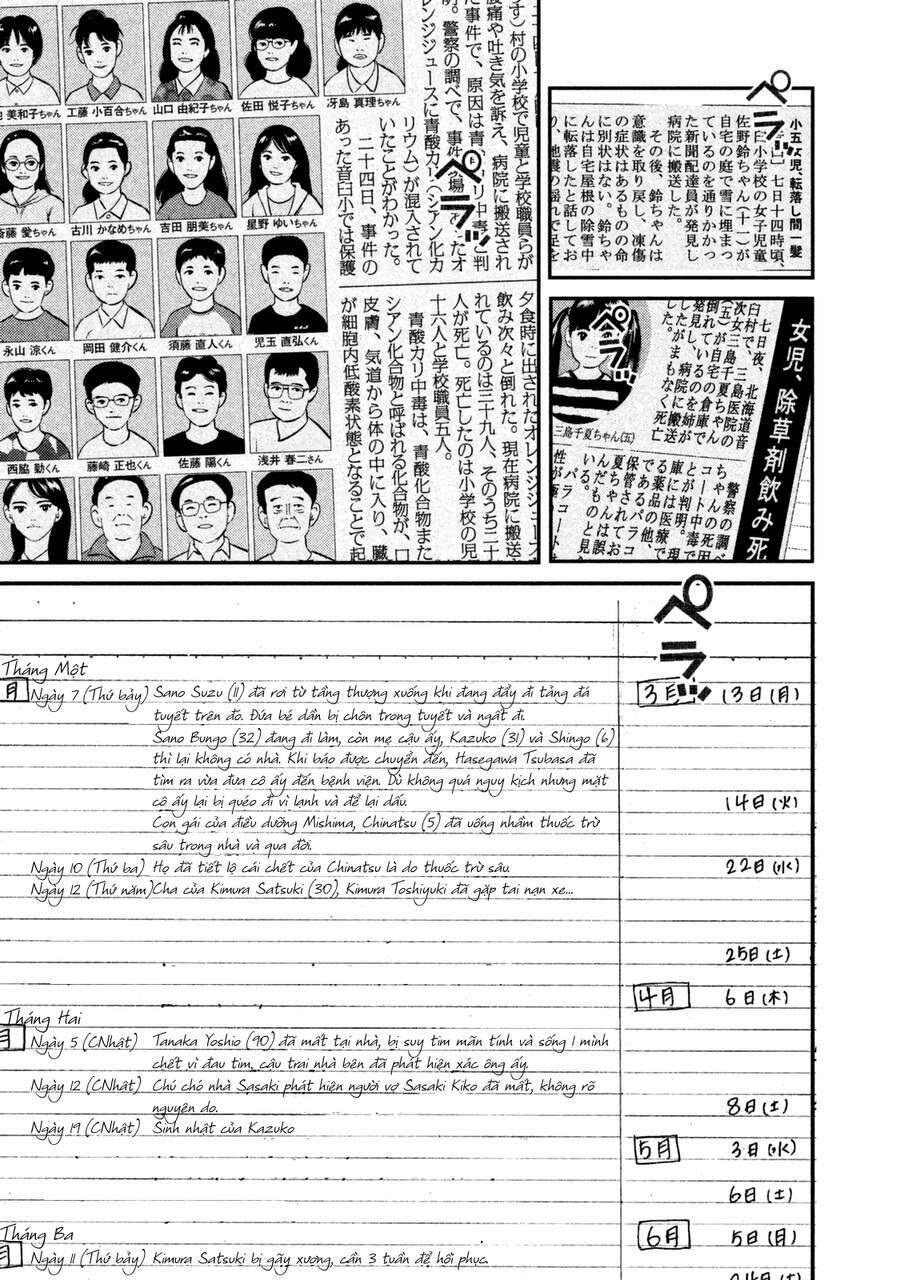 す)村の小学校で児童と学校職員らが
腹痛や吐き気を訴え、病院に搬送され
オレンジジュースに青酸カリ(シアン化カ
リウム)が混入されて
いたことがわかった。
二十四日、事件の
あった音臼小では保護
工藤 小百合ちゃん
山口 由紀子ちゃん
佐田 悦子ちゃん
冴島 真理ちゃん
斎藤 愛ちゃん
古川 かなめちゃん
吉田 朋美ちゃん
星野 ゆいちゃん
永山 涼くん
岡田 健介くん
須藤 直人くん
児玉 直弘くん
西脇 勤くん
藤崎 正也くん
佐藤 陽くん
浅井 春二さん
夕食時に出されたオレンジジュース
飲み次々と倒れた。現在病院に搬送
れているのは三十九人、そのうち二十
人が死亡。死亡したのは小学校の児
十六人と学校職員五人。
青酸カリ中毒は、青酸化合物また
シアン化合物と呼ばれる化合物が、口
皮膚、気道から体の中に入り、臓
が細胞内低酸素状態となることで起
ペラッ
小五女児、転落し間一髪
七日十四時頃、
臼小学校の女子児童
佐野鈴ちゃん(十一)が
自宅の庭で雪に埋まっ
ているのを通りかかっ
た新聞配達員が発見し
病院に搬送した。
その後、鈴ちゃんは
意識を取り戻し、凍傷
の症状はあるものの命
に別状はない。鈴ちゃ
んは自宅屋根の除雪中
に転落したと話してお
ペラッ
女児、除草剤飲み死
七日夜、北海道音
臼村で、三島医院の
次女三島千夏ちゃん
(五)が自宅の倉庫で
倒れているのを姉が
発見し、病院に搬送
したがまもなく死亡
した。
三島千夏ちゃん(五)
警察の調べ
ちゃんの死因
コート中毒で
とが判明。現
庫には医療で
る薬品の他、
であるパラコ
保管されてお
夏ちゃんは誤
んだものと見
いる。
パラコート
性が極
ペラッ
ペラッ
Tháng Một
月
Ngày 7 (Thứ bảy) Sano Suzu (11) đã rơi từ tầng thượng xuống khi đang đẩy đi tảng đá
tuyết trên đó. Đứa bé dần bị chôn trong tuyết và ngất đi.
Sano Bungo (32) đang đi làm, còn mẹ cậu ấy, Kazuko (31) và Shingo (6)
thì lại không có nhà. Khi báo được chuyển đến, Hasegawa Tsubasa đã
tìm ra vừa đưa cô ấy đến bệnh viện. Dù không quá nguy kịch nhưng mặt
cô ấy lại bị quéo đi vì lạnh và để lại dấu.
Con gái của điều dưỡng Mishima, Chinatsu (5) đã uống nhầm thuốc trừ
sâu trong nhà và qua đời.
Ngày 10 (Thứ ba) Họ đã tiết lộ cái chết của Chinatsu là do thuốc trừ sâu.
Ngày 12 (Thứ năm) Cha của Kimura Satsuki (30), Kimura Toshiyuki đã gặp tai nạn xe...
Tháng Hai
月
Ngày 5 (CNhật) Tanaka Yoshio (90) đã mất tại nhà, bị suy tim mãn tính và sống 1 mình
chết vì đau tim, cậu trai nhà bên đã phát hiện xác ông ấy.
Ngày 12 (CNhật) Chú chó nhà Sasaki phát hiện người vợ Sasaki Kiko đã mất, không rõ
nguyên do.
Ngày 19 (CNhật) Sinh nhật của Kazuko
Tháng Ba
月
Ngày 11 (Thứ bảy) Kimura Satsuki bị gãy xương, cần 3 tuần để hồi phục.
3月 13日(月)
14日(火)
22日(水)
25日(土)
4月 6日(木)
8日(土)
5月 3日(水)
6日(土)
6月 5日(月)